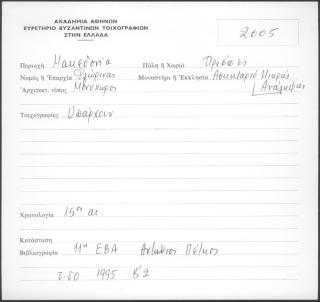 ΑΚΑΔΗΜΙΑ ΑΘΗΝΩΝ
ΕΥΡΕΤΗΡΙΟ ΒΥΖΑΝΤΙΝΩΝ ΤΟΙΧΟΓΡΑΦΙΩΝ
ΣΤΗΝ ΕΛΛΑΔΑ
2005
Περιοχή Μακεδονία Πόλη ἤ Χωριό Πρέσπες
Νομός ἤ Ἐπαρχία Φλώρινας Μοναστήρι ἤ Ἐκκλησία Ασκηταριό Μικρής
Ἀρχιτεκτ. τύπος Μονόχωρος Ανάληψης
Τοιχογραφίες Υπάρχουν
Χρονολογία 15ος αι.
Κατάσταση
Βιβλιογραφία 11η ΕΒΑ Αντώνιος Πέτκος
τ. 50 1995 Β'2